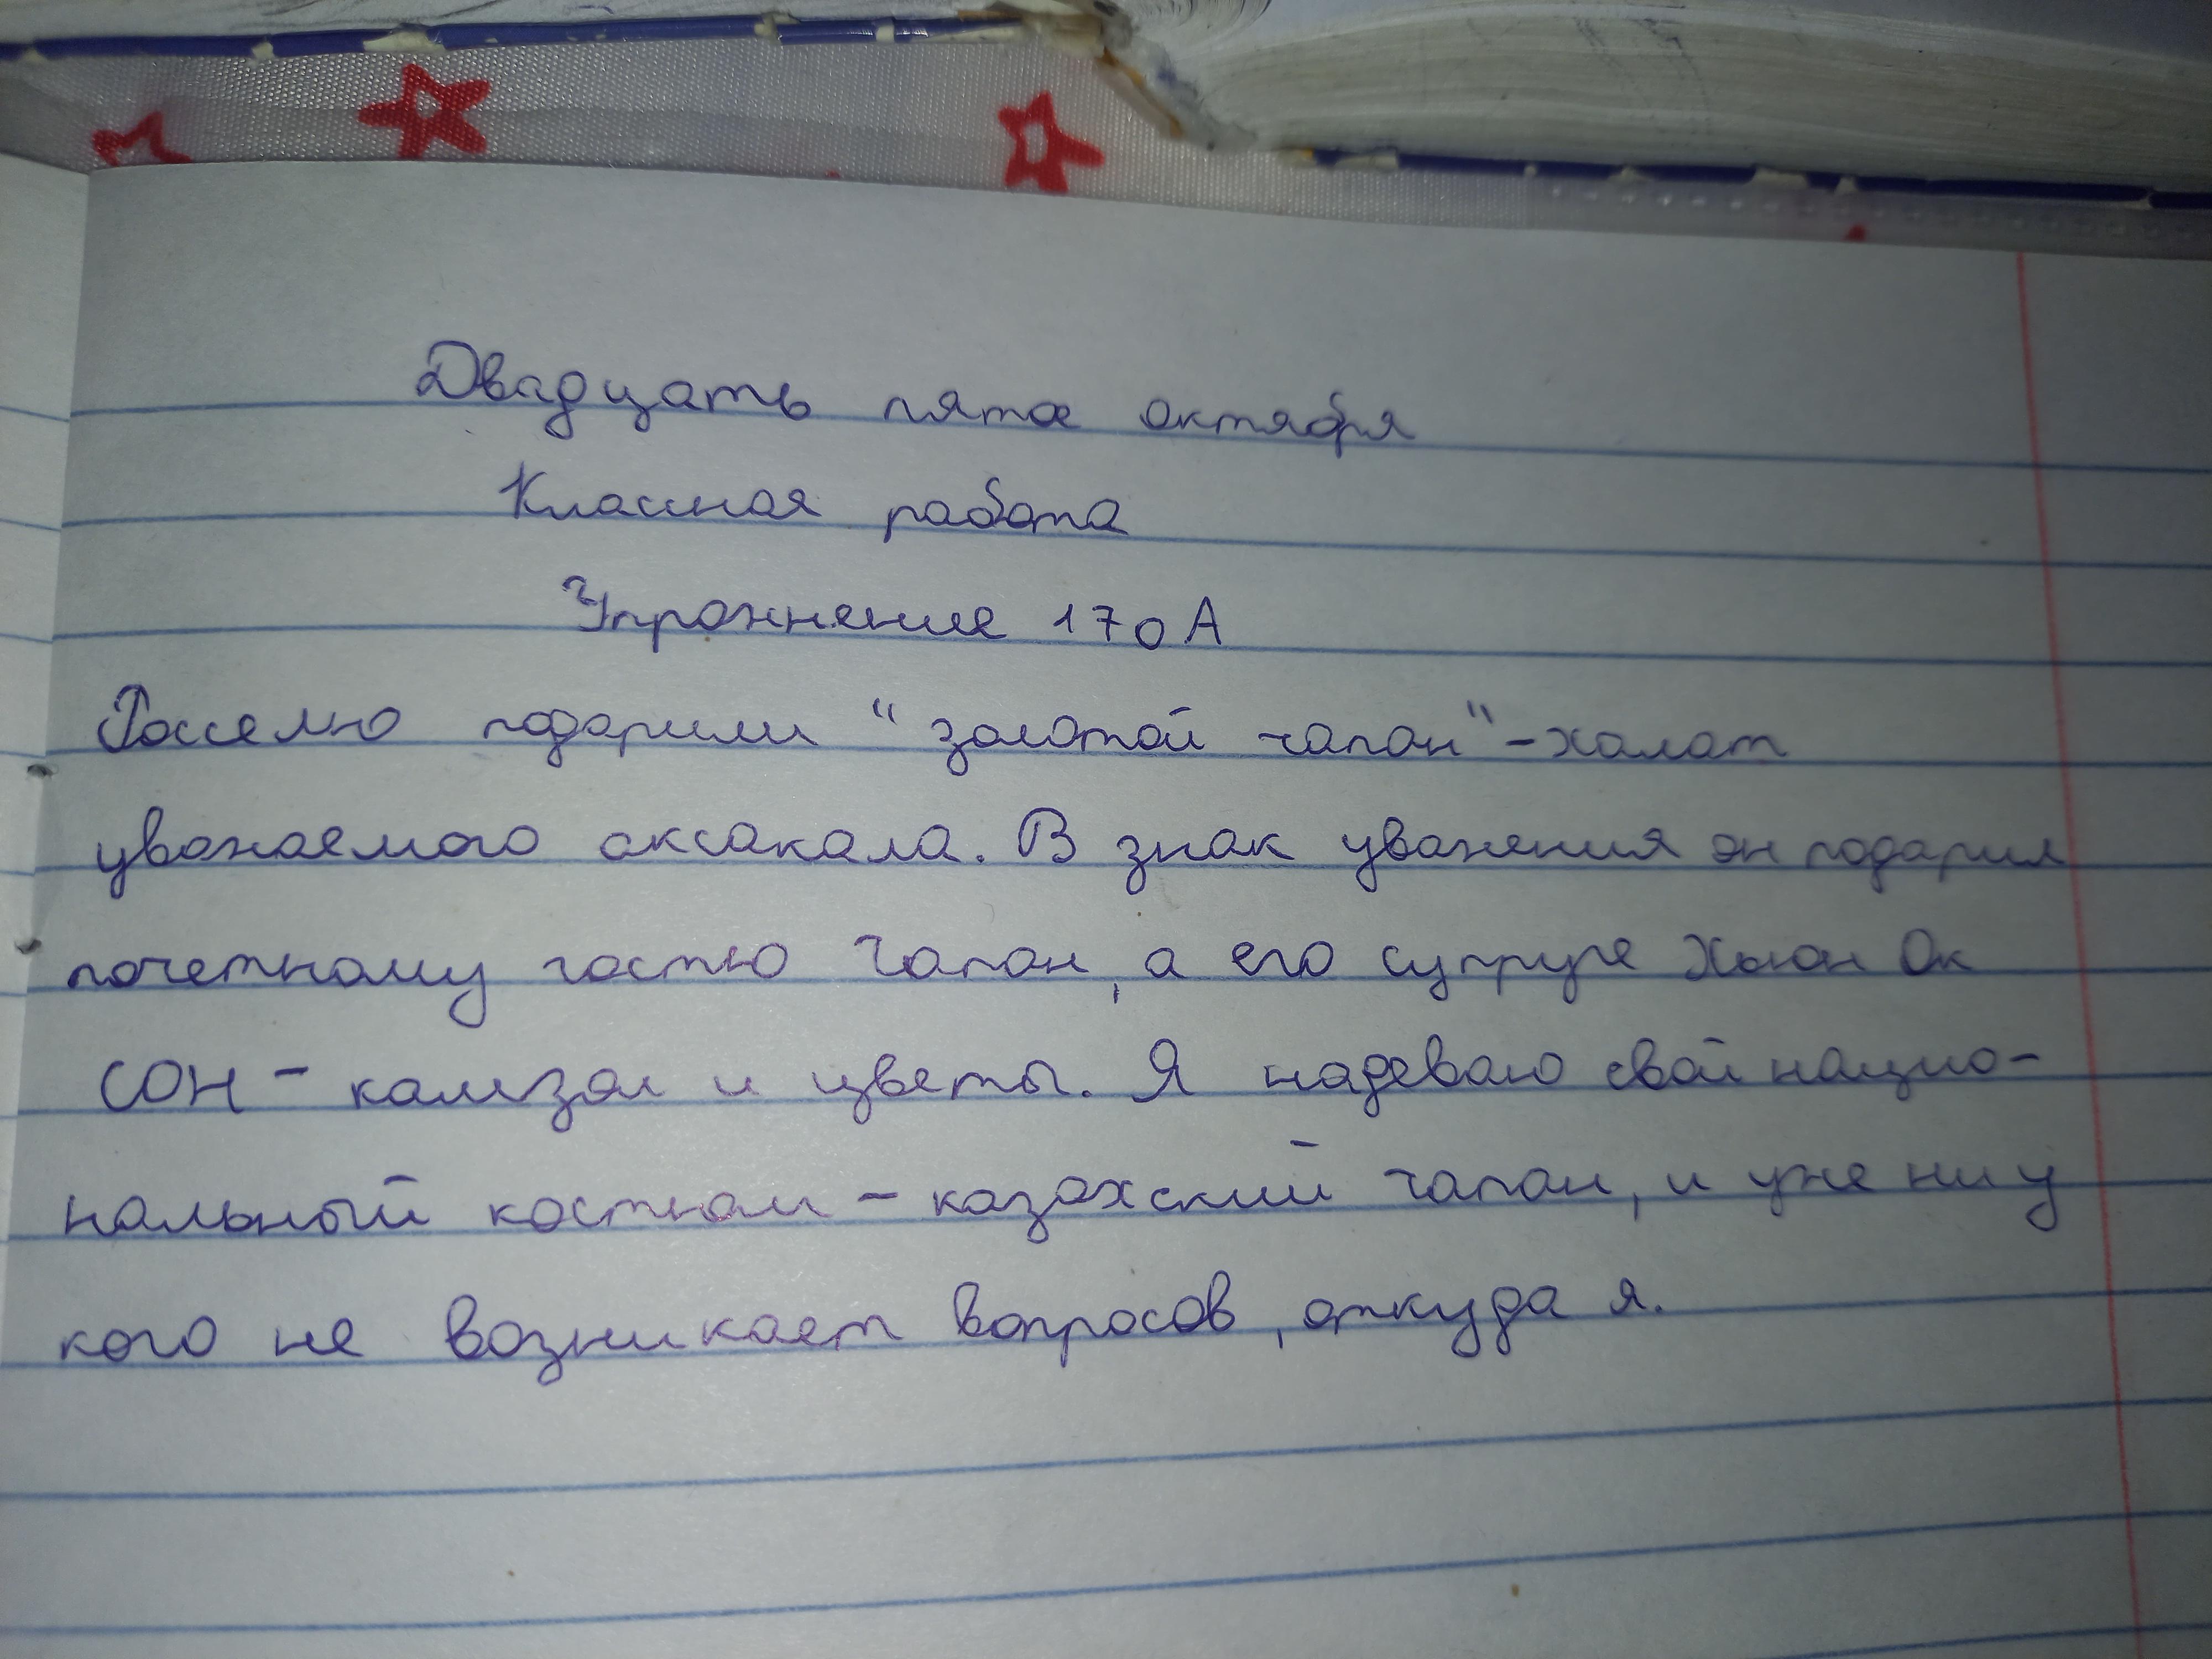 Двадцать пятое октября
Классная работа
Упражнение 170 А
Росселю подарили “золотой чапан” - халат
уважаемого аксакала. В знак уважения он подарил
почетному гостю чапан, а его супруге Хыон Ок
СОН - камзол и цветы. Я надеваю свой нацио-
нальный костюм - казахский чапан, и уже ни у
кого не возникает вопросов, откуда я.